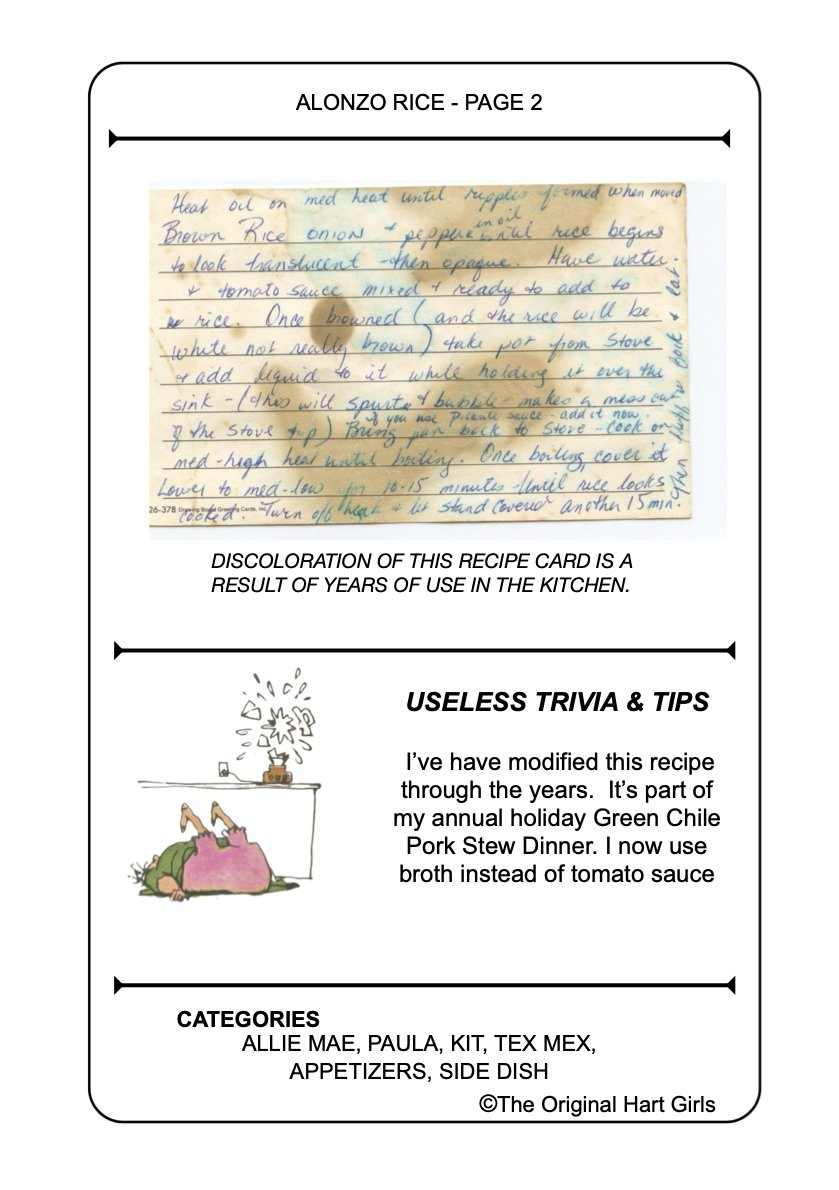 ALONZO RICE - PAGE 2
Heat oil on med heat until ripples formed when moved
in oil
Brown Rice onions + peppers until rice begins
to look translucent - then opaque. Have water
+ tomato sauce mixed + ready to add to
rice. Once browned (and the rice will be
white not really brown) take pot from stove
+ add liquid to it while holding it over the
sink - (this will spurt + bubble makes a mess out
if you use Picante sauce - add it now.
of the stove top) Bring pan back to stove - cook on
med-high heat until boiling. Once boiling, cover it
Lower to med-low for 10-15 minutes - Until rice looks
26-378 Drawing Board Greeting Cards, Inc.
cooked. Turn off heat + let stand covered another 15 min.
Then fluff w fork + eat
DISCOLORATION OF THIS RECIPE CARD IS A
RESULT OF YEARS OF USE IN THE KITCHEN.
USELESS TRIVIA & TIPS
I’ve have modified this recipe
through the years.  It’s part of
my annual holiday Green Chile
Pork Stew Dinner. I now use
broth instead of tomato sauce
CATEGORIES
ALLIE MAE, PAULA, KIT, TEX MEX,
APPETIZERS, SIDE DISH
©The Original Hart Girls